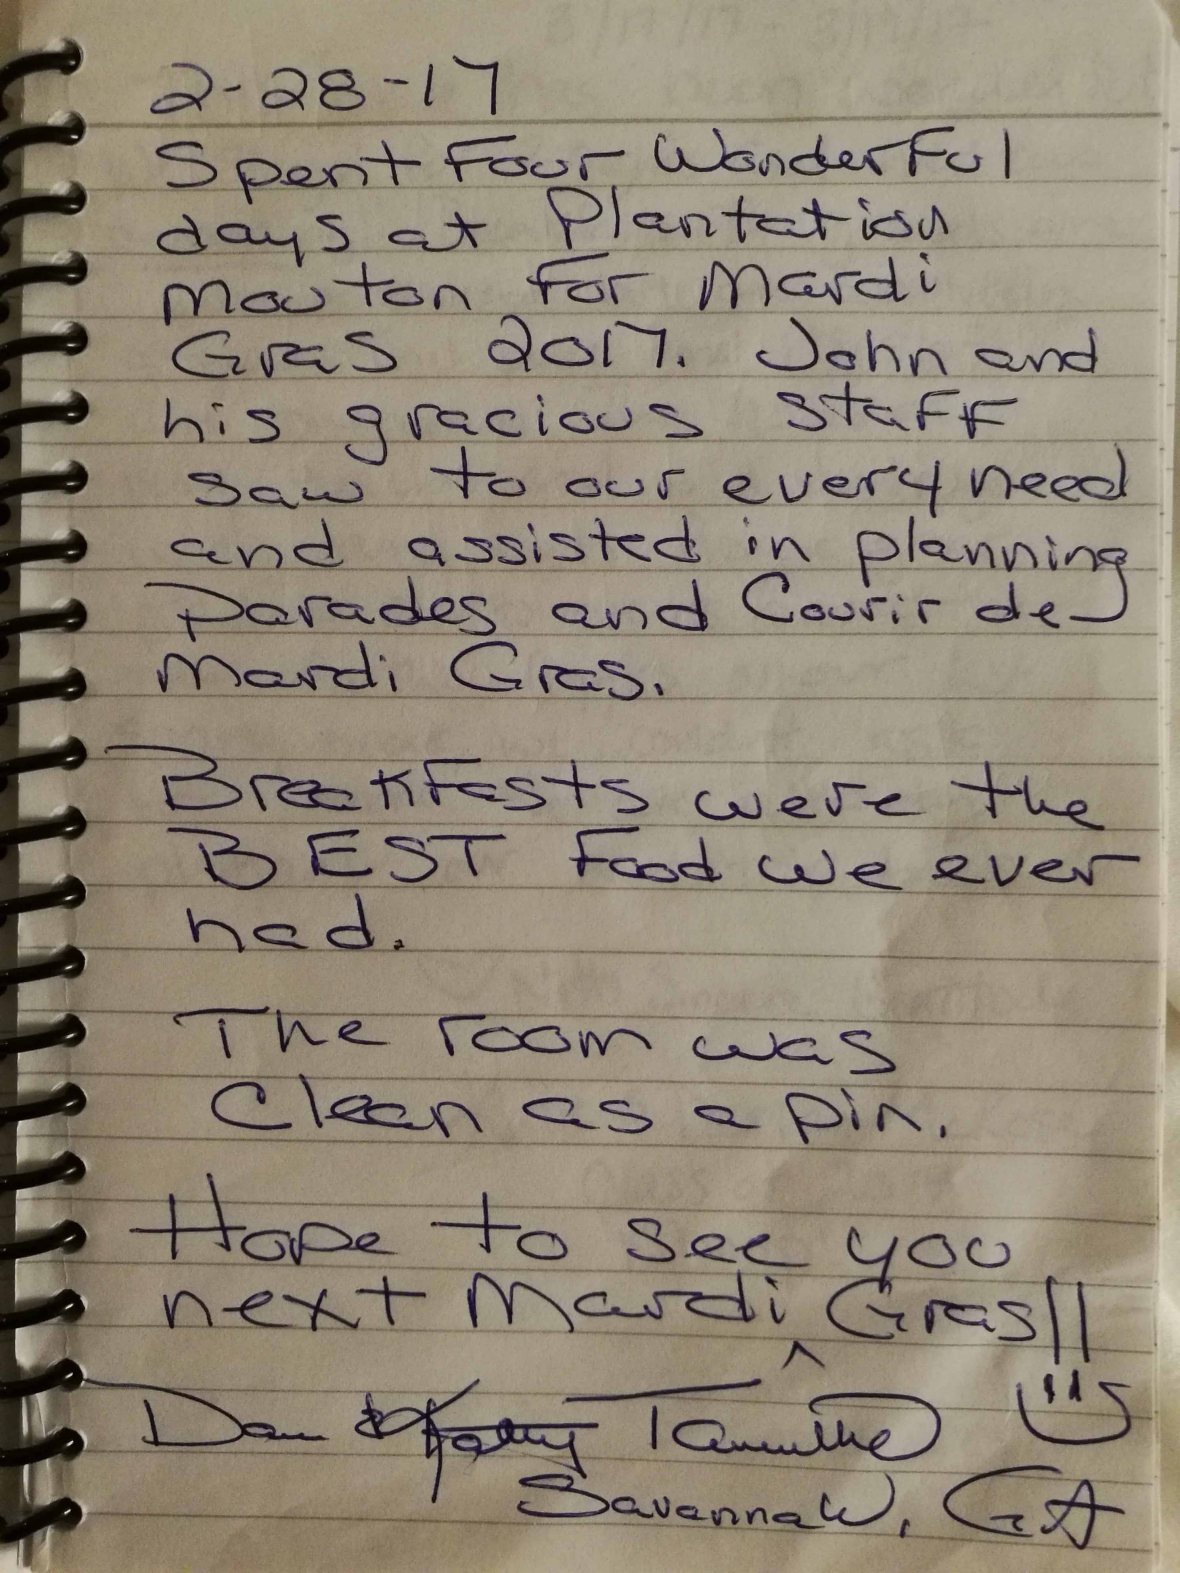 2-28-17
Spent Four Wonderful
days at Plantation
Mouton For Mardi
Gras 2017. John and
his gracious staff
saw to our every need
and assisted in planning
Parades and Courir de
Mardi Gras.
Breakfasts were the
BEST Food we ever
had.
The room was
Clean as a pin.
Hope to see you
next Mardi Gras!!
^
Dan & Kathy
Savannah, GA